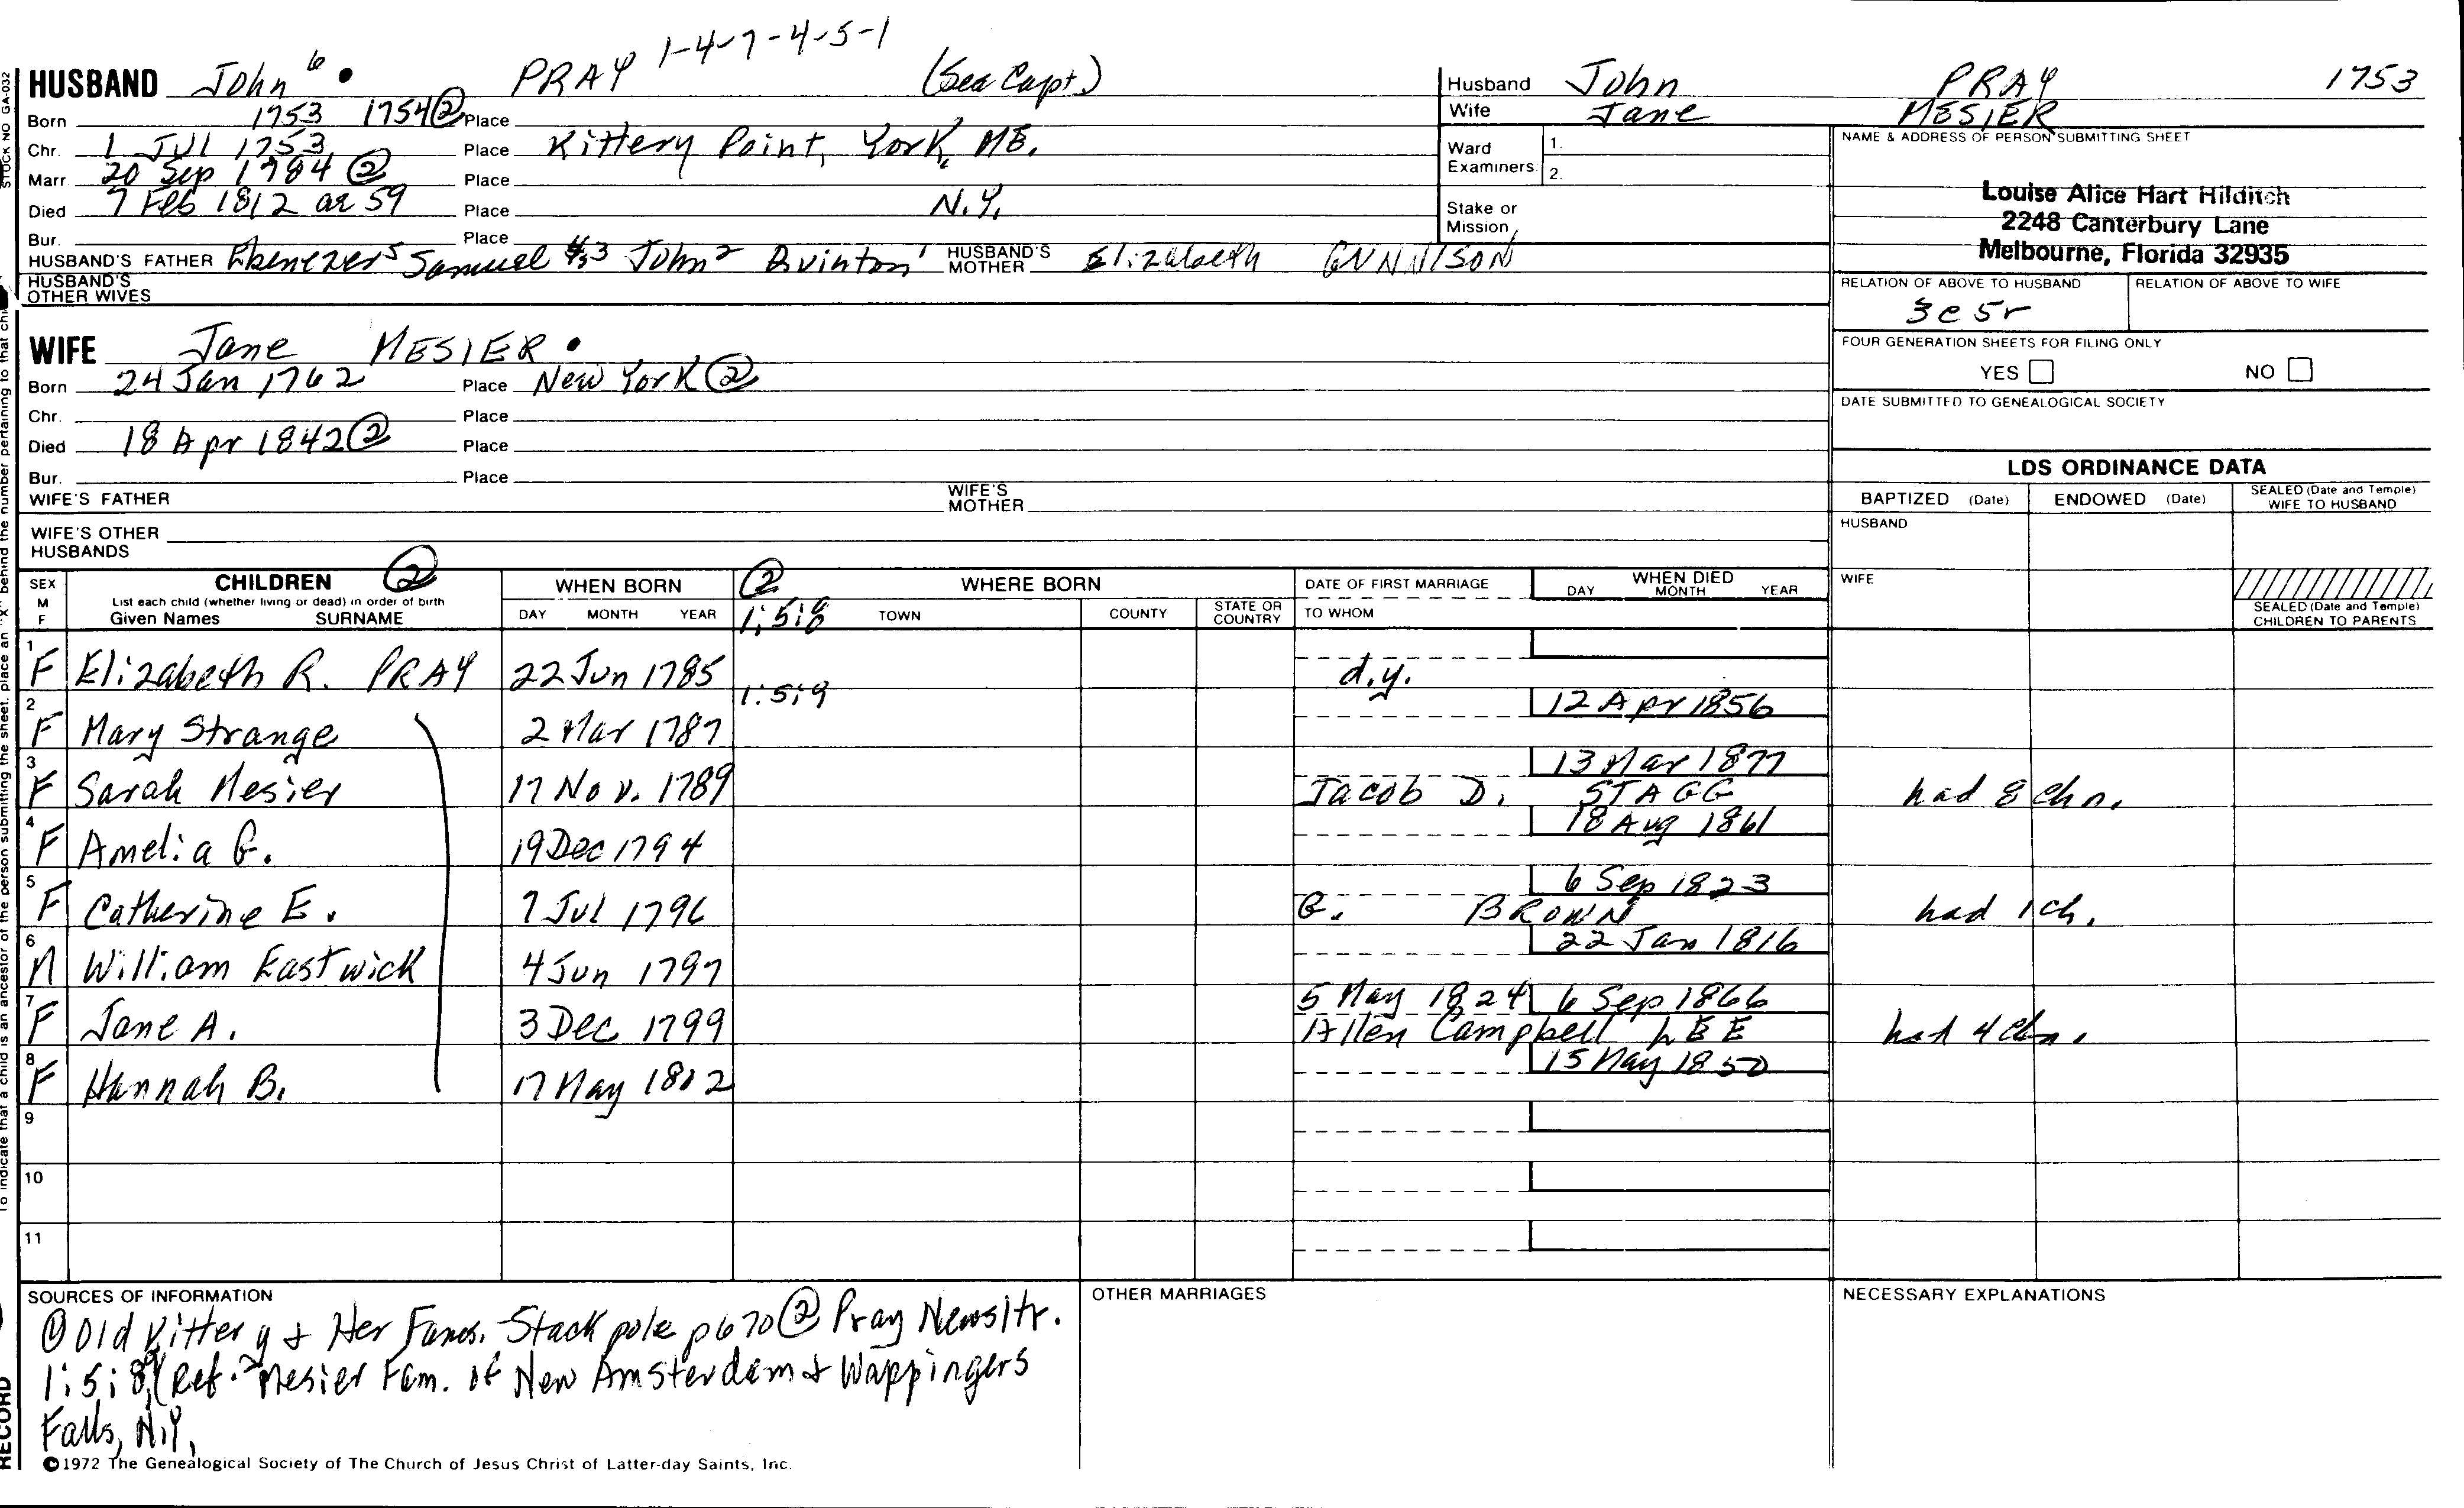 1-4-7-4-5-1
HUSBAND John 6 • PRAY (Sea Capt.)
Born 1753 1754 ② Place
Chr. 1 Jul 1753 Place Kittery Point, York, ME.
Marr. 20 Sep 1784 ② Place
Died 7 Feb 1812 ae 59 Place N.Y.
Bur. Place
HUSBAND'S FATHER Ebenezer 5 Samuel 4,3 John 2 Quinton 1 HUSBAND'S MOTHER Elizabeth GUNNISON
HUSBAND'S OTHER WIVES
Husband John PRAY 1753
Wife Jane MESIER
Ward Examiners: 1.
2.
Stake or Mission
NAME & ADDRESS OF PERSON SUBMITTING SHEET
Louise Alice Hart Hilditch
2248 Canterbury Lane
Melbourne, Florida 32935
RELATION OF ABOVE TO HUSBAND RELATION OF ABOVE TO WIFE
3c 5r
FOUR GENERATION SHEETS FOR FILING ONLY
YES NO
DATE SUBMITTED TO GENEALOGICAL SOCIETY
WIFE Jane MESIER •
Born 24 Jan 1762 Place New York ②
Chr. Place
Died 18 Apr 1842 ② Place
Bur. Place
WIFE'S FATHER WIFE'S MOTHER
WIFE'S OTHER HUSBANDS
LDS ORDINANCE DATA
BAPTIZED (Date) ENDOWED (Date) SEALED (Date and Temple) WIFE TO HUSBAND
HUSBAND
WIFE
SEALED (Date and Temple) CHILDREN TO PARENTS
SEX M F CHILDREN ② WHEN BORN ② WHERE BORN DATE OF FIRST MARRIAGE WHEN DIED
List each child (whether living or dead) in order of birth
Given Names SURNAME DAY MONTH YEAR 1:5:8 TOWN COUNTY STATE OR COUNTRY TO WHOM DAY MONTH YEAR
1 F Elizabeth R. PRAY 22 Jun 1785 d.y.
1:5:9
2 F Mary Strange 2 Mar 1787 12 Apr 1856
3 F Sarah Mesier 17 Nov. 1789 13 Mar 1877 Jacob D. STAGG had 8 chn.
4 F Amelia G. 19 Dec 1794 18 Aug 1861
5 F Catherine E. 7 Jul 1796 6 Sep 1823 G. BROWN had 1 ch.
6 M William Eastwick 4 Jun 1797 22 Jan 1816
7 F Jane A. 3 Dec 1799 5 May 1824 6 Sep 1866 Allen Campbell LEE had 4 chn.
8 F Hannah B. 17 May 1802 15 May 1850
9
10
11
SOURCES OF INFORMATION OTHER MARRIAGES NECESSARY EXPLANATIONS
① Old Kittery & Her Fams. Stackpole p 670 ② Pray Newsltr.
1:5:8,9 (Ref. Mesier Fam. of New Amsterdam & Wappingers
Falls, N.Y.
©1972 The Genealogical Society of The Church of Jesus Christ of Latter-day Saints, Inc.
STOCK NO GA-032
To indicate that a child is an ancestor of the person submitting the sheet, place an "X" behind the number pertaining to that chi
RECORD